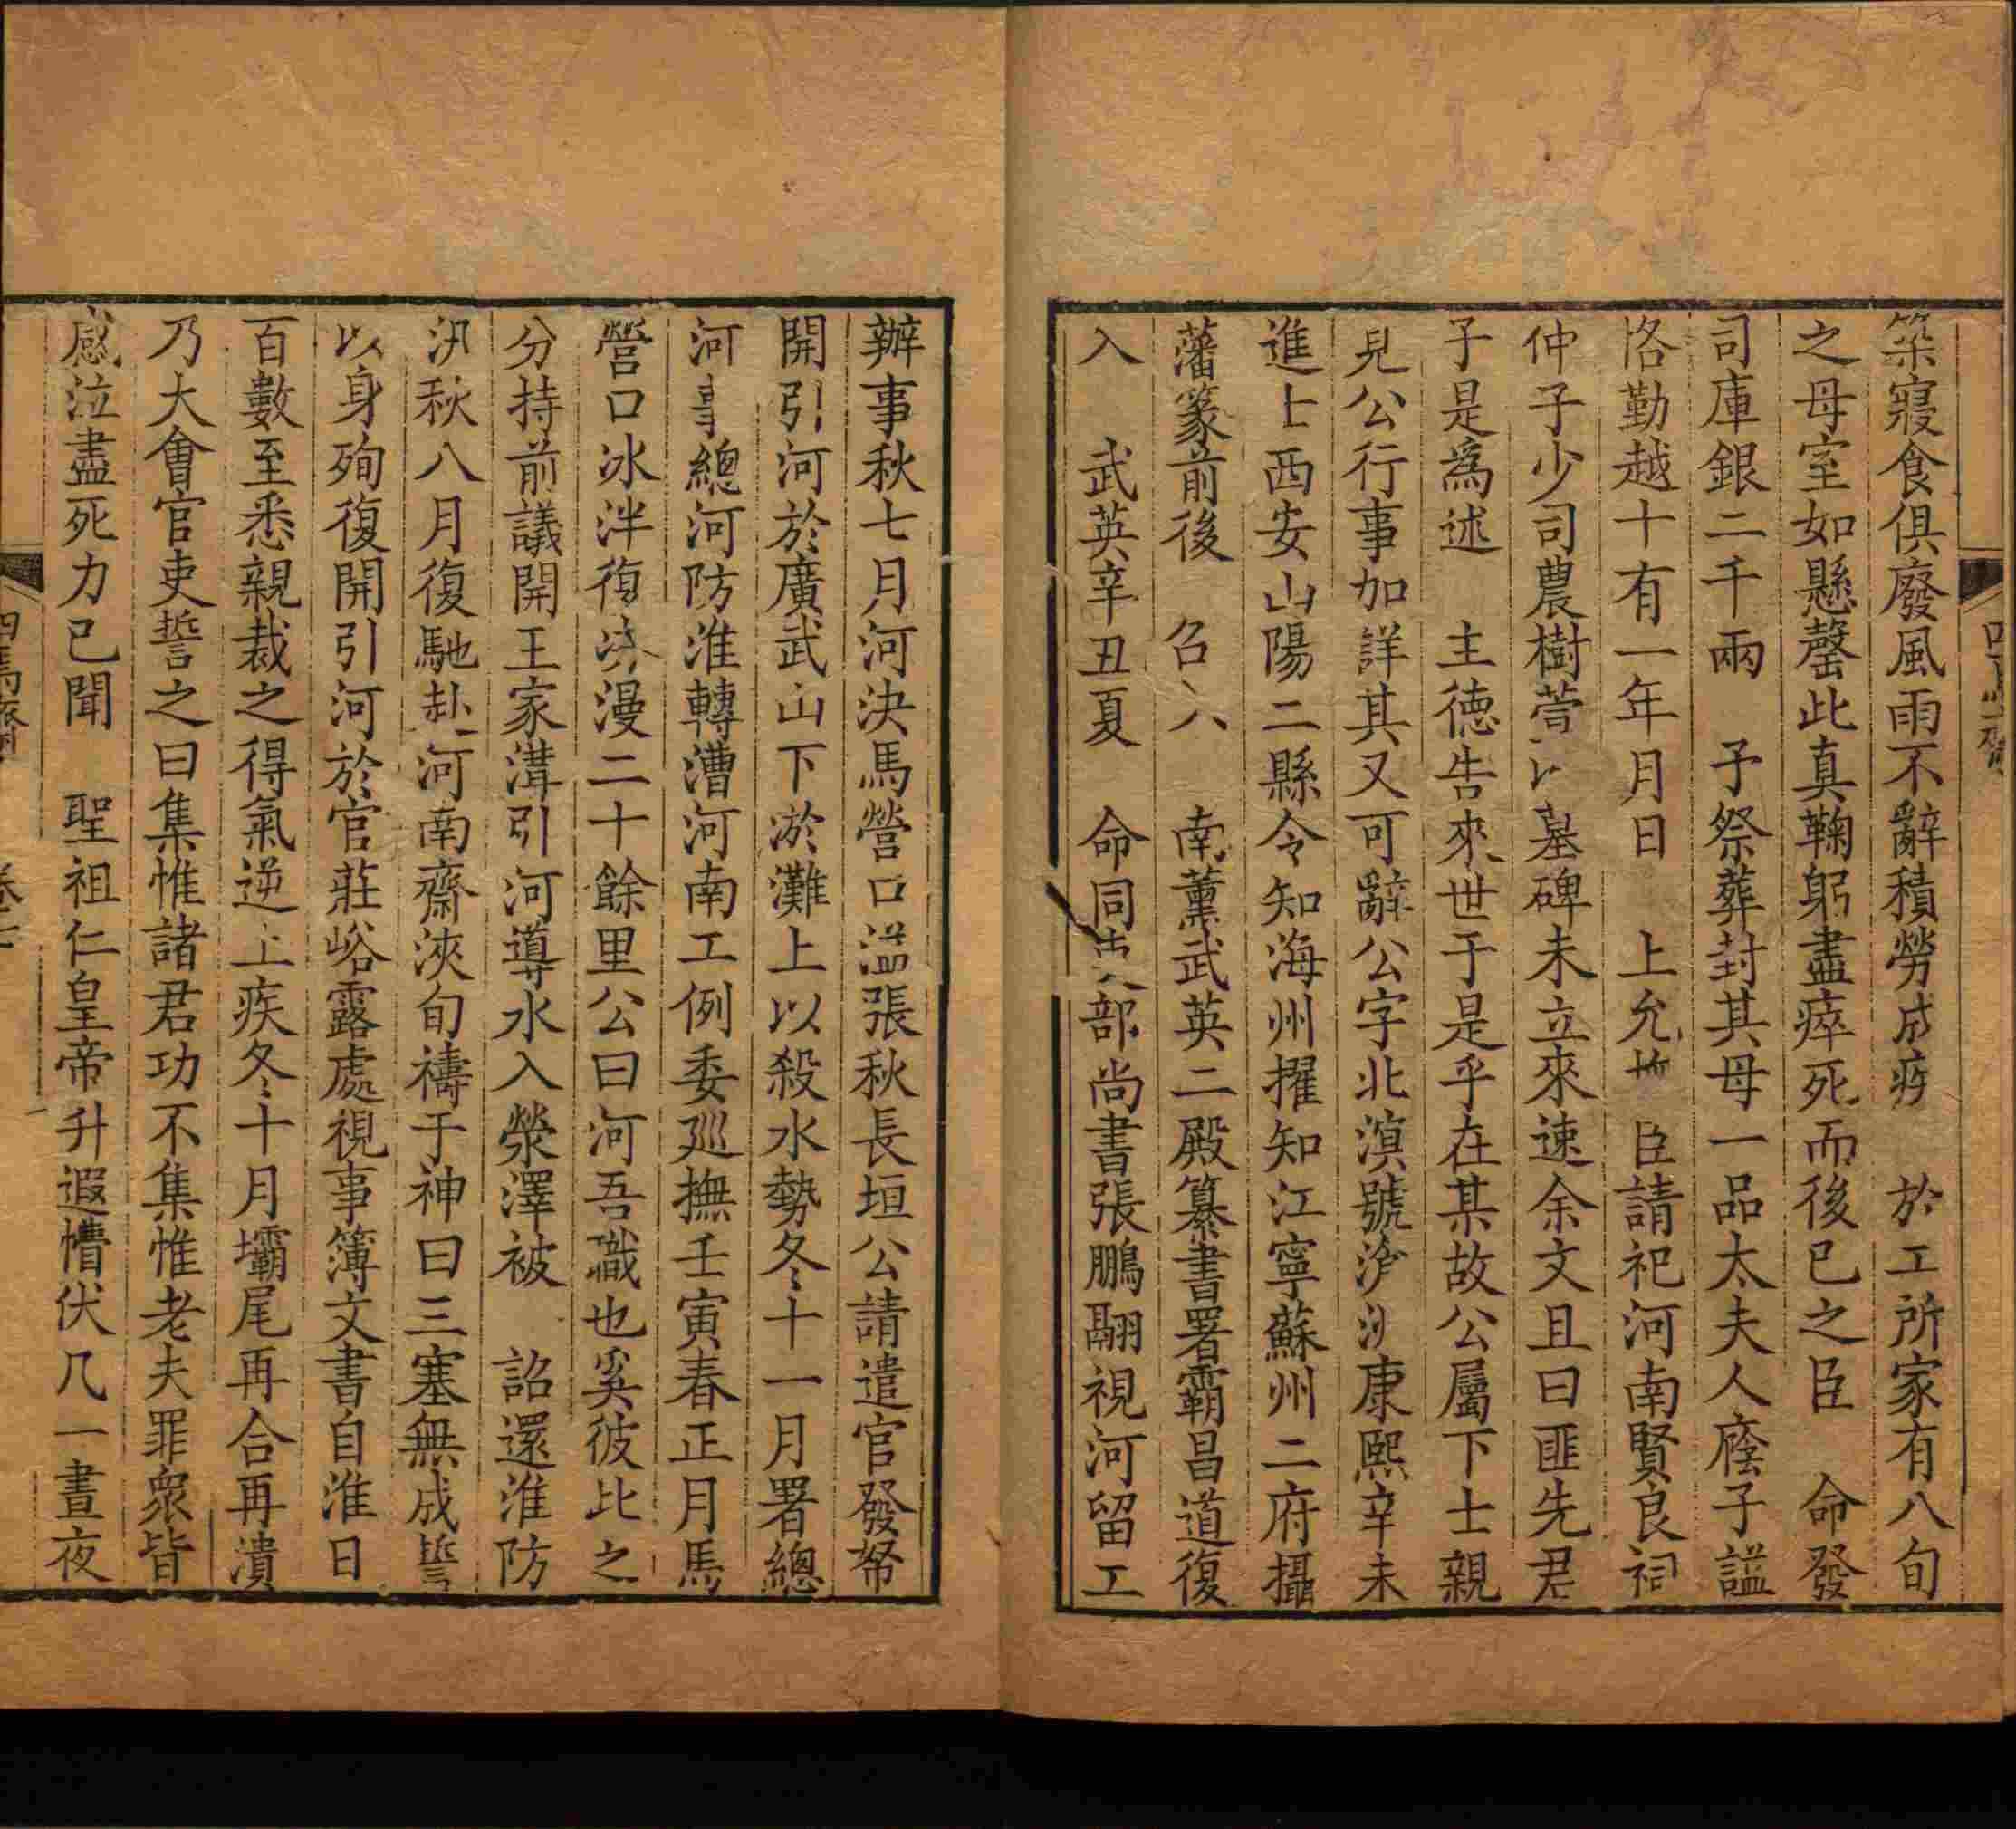 築寢食俱廢風雨不辭積勞成疾　於工所家有八旬
之母室如懸罄此真鞠躬盡瘁死而後已之臣　命發
司庫銀二千兩　予祭葬封其母一品太夫人廕子謚
恪勤越十有一年月日　上允　臣請祀河南賢良祠
仲子少司農樹萱以墓碑未立來速余文且曰匪先君
子是為述　主德告來世于是乎在某故公屬下士親
見公行事加詳其又可辭公字北溟號滄洲康熙辛未
進士西安山陽二縣令知海州擢知江寧蘇州二府攝
藩篆前後　召入　南薰武英二殿纂書署霸昌道復
入　武英辛丑夏　命同　部尚書張鵬翮視河留工
辦事秋七月河決馬營口溢張秋長垣公請遣官發帑
開引河於廣武山下淤灘上以殺水勢冬十一月署總
河事總河防淮轉漕河南工例委巡撫壬寅春正月馬
營口冰泮復決漫二十餘里公曰河吾職也奚彼此之
分持前議開王家溝引河導水入滎澤被　詔還淮防
汛秋八月復馳赴河南齋浹旬禱于神曰三塞無成誓
以身殉復開引河於官莊峪露處視事簿文書自淮日
百數至悉親裁之得氣逆上疾冬十月壩尾再合再潰
乃大會官吏誓之曰集惟諸君功不集惟老夫罪衆皆
感泣盡死力已聞　聖祖仁皇帝升遐懵伏几一晝夜